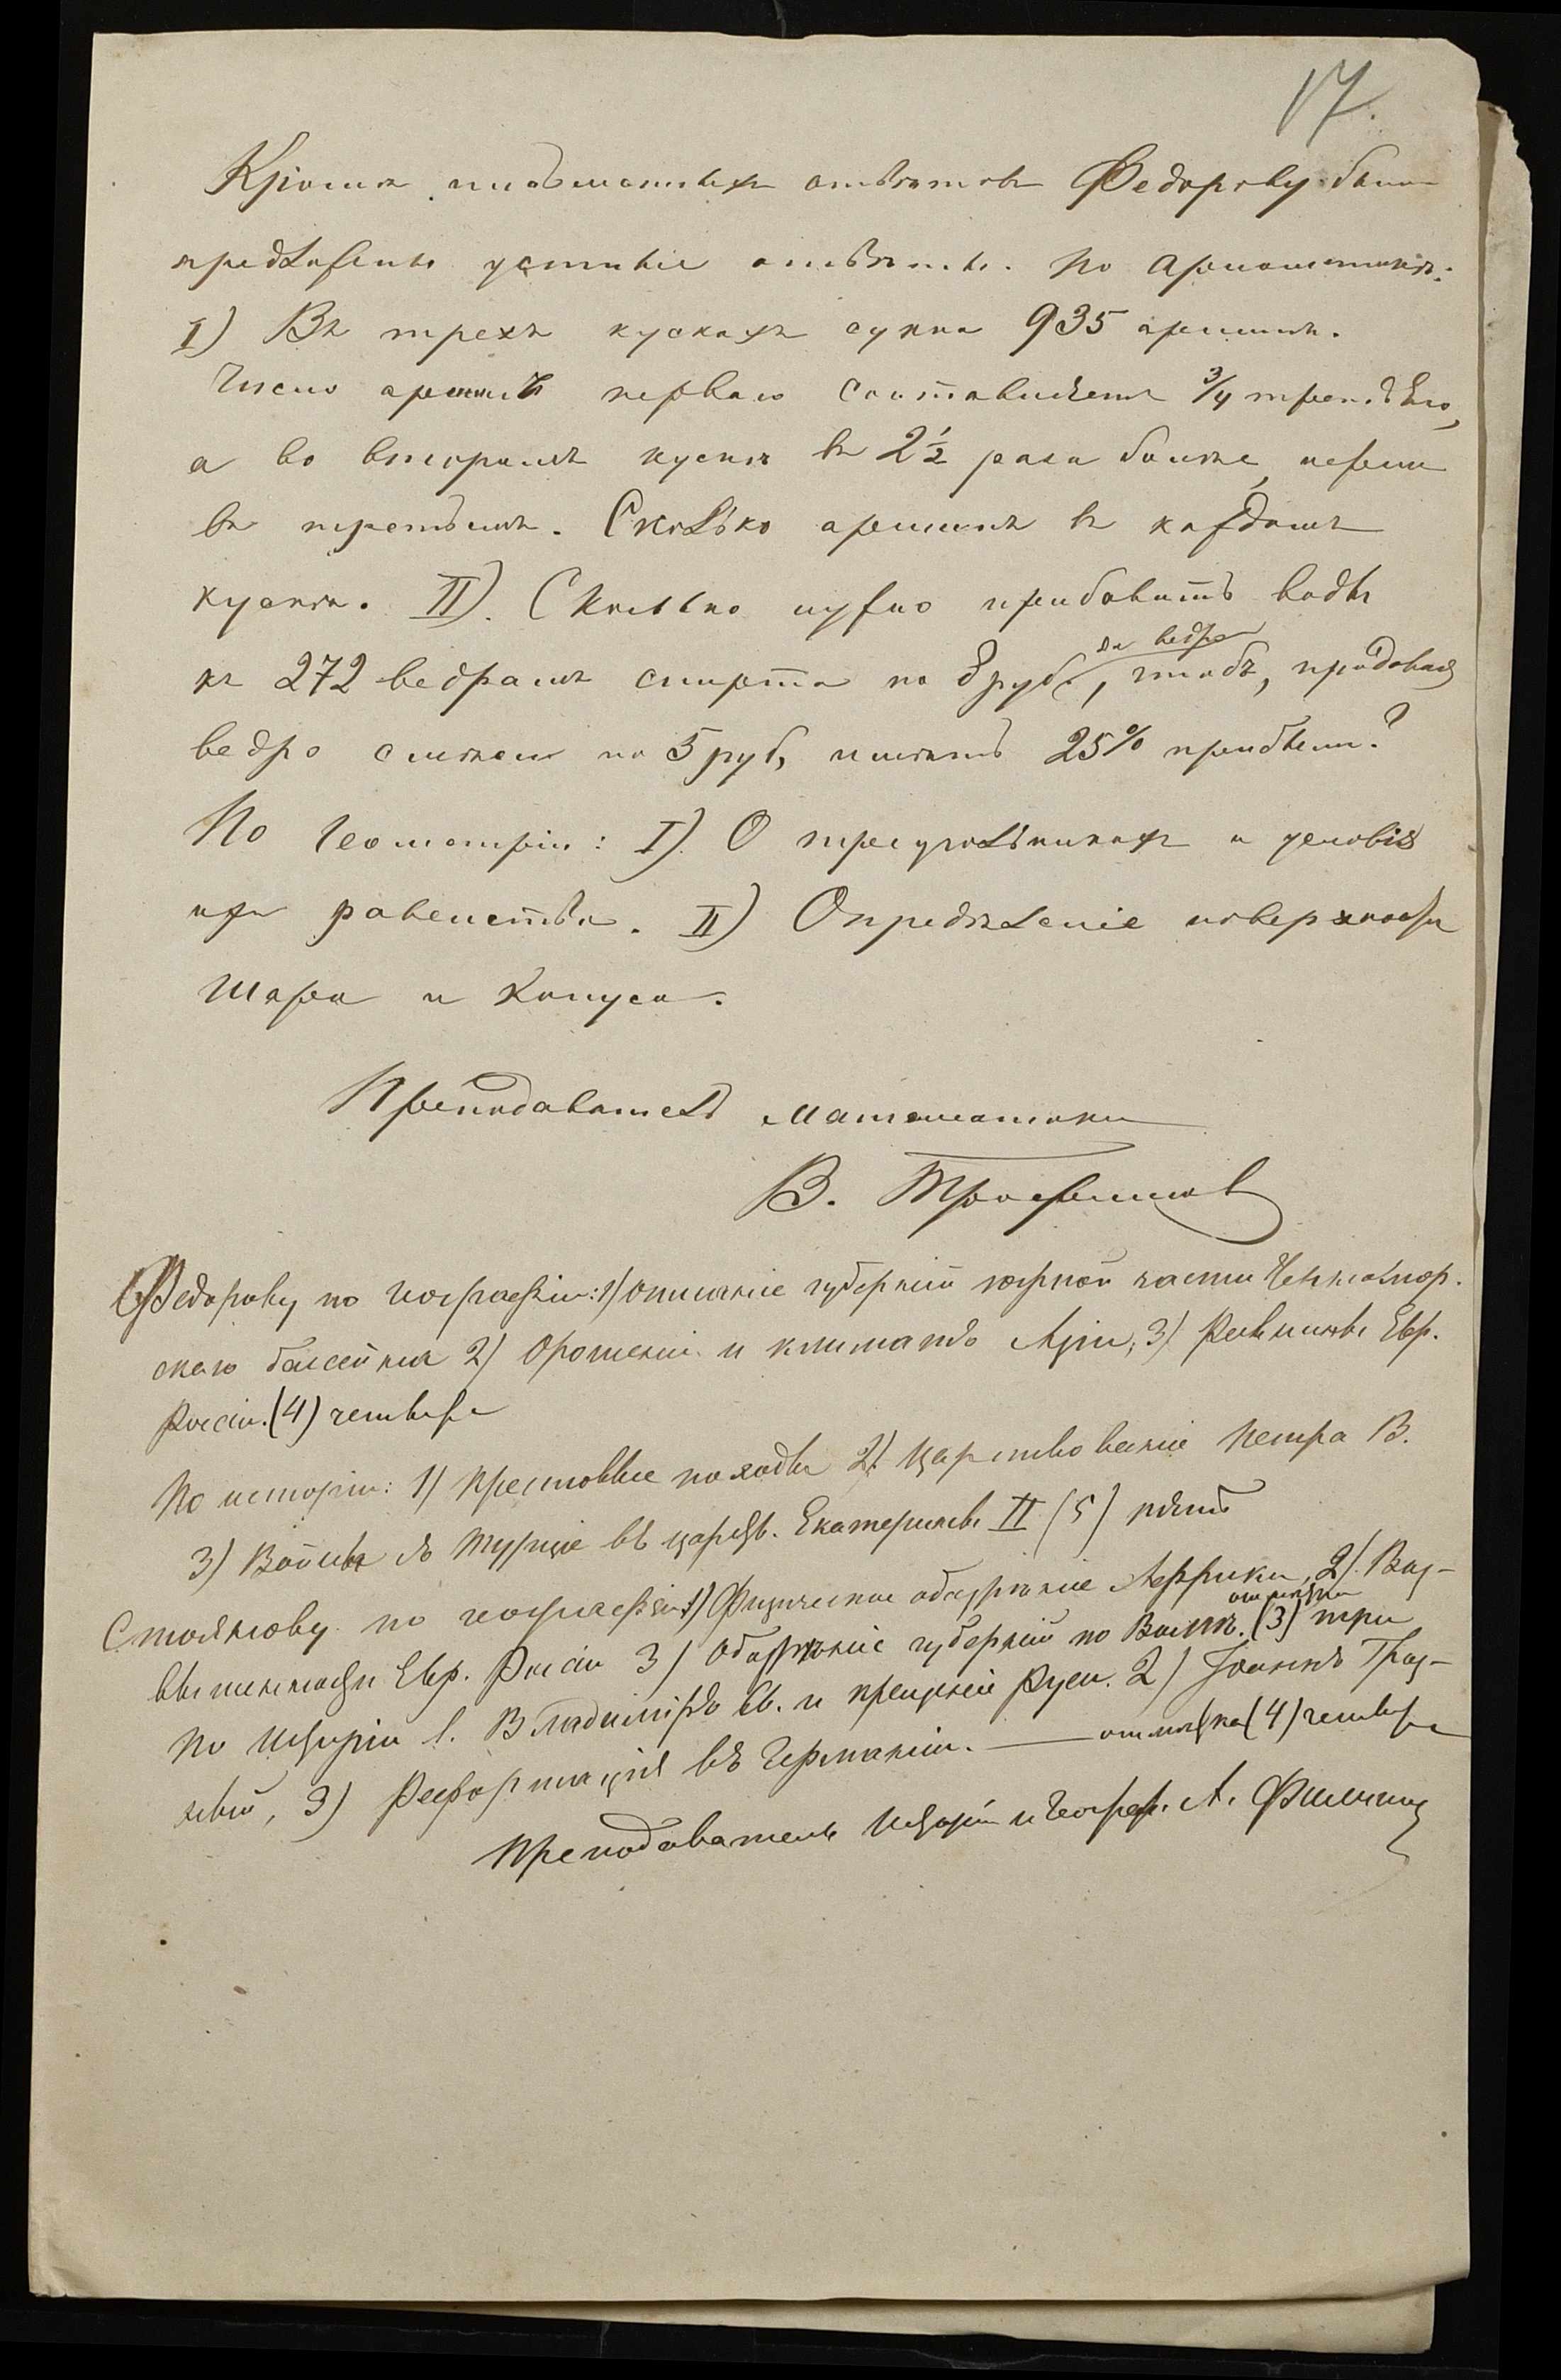 17.
Кромѣ письменныхъ отвѣтовъ Федорову были
предложены устные отвѣты. По Ариѳметикѣ:
I) Въ трехъ кускахъ сукна 935 аршинъ.
Число аршинъ перваго составляетъ 3/4 третьяго,
а во второмъ кускѣ въ 2 1/2 раза болѣе, нежели
въ третьемъ. Сколько аршинъ въ каждомъ
кускѣ. II). Сколько нужно прибавить воды
за ведро
къ 272 ведрамъ спирта по 8 руб., чтобъ, продавая
ведро смѣси по 5 руб, имѣть 25% прибыли?
По Геометріи: I). О треугольникахъ и условія
ихъ равенства. II) Опредѣленіе поверхности
шара и конуса.
Преподаватель математики
В. Трофимов
Федорову по географіи: 1) описаніе губерній южной части Черномор.
скаго бассейна 2) Орошеніе и климатъ Азіи, 3) Равнины Евр.
Россіи. (4) четыре
По исторіи: 1) Крестовые походы 2) Царствованіе Петра В.
3) Войны съ Турціе въ царств. Екатерины II (5) пять
Стоянову по географіи 1) Физическое обозрѣніе Африки, 2) Воз-
отмѣтка
вышенности Евр. Россіи 3) Обозрѣніе губерній по Волгѣ. (3) три
По Исторіи 1. Владиміръ Св. и крещеніе Руси. 2) Іоаннъ Гроз-
ный, 3) Реформація въ Германіи. — отмѣтка (4) четыре
Преподаватель Исторіи и Географ. А.